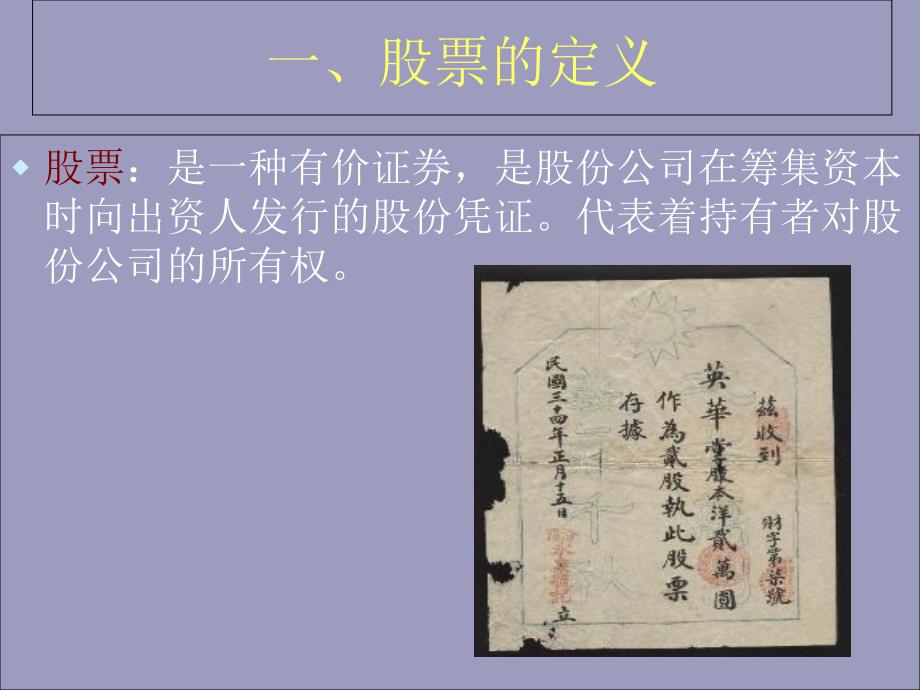 一、股票的定义
股票：是一种有价证券，是股份公司在筹集资本
时向出资人发行的股份凭证。代表着持有者对股
份公司的所有权。
財字第柒號
茲收到
英華堂股本洋貳萬圓
作為貳股執此股票
存據
民國三十四年正月十五日
立